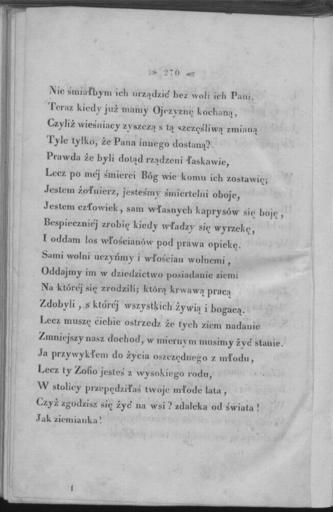 270
Nie śmiałbym ich urządzić bez woli ich Pani.
Teraz kiedy już mamy Ojczyznę kochaną,
Czyliż wieśniacy zyszczą s tą szczęśliwą zmianą
Tyle tylko, że Pana innego dostaną?
Prawda że byli dotąd rządzeni łaskawie,
Lecz po méj śmierci Bóg wie komu ich zostawię;
Jestem żołnierz, jesteśmy śmiertelni oboje,
Jestem człowiek, sam własnych kaprysów się boję,
Bespieczniéj zrobię kiedy władzy się wyrzekę,
I oddam los włościanów pod prawa opiekę.
Sami wolni uczyńmy i włościan wolnemi,
Oddajmy im w dziedzictwo posiadanie ziemi
Na któréj się zrodzili; którą krwawą pracą
Zdobyli, s któréj wszystkich żywią i bogacą.
Lecz muszę ciebie ostrzedz że tych ziem nadanie
Zmniejszy nasz dochod, w miernym musimy żyć stanie.
Ja przywykłem do życia oszczędnego z młodu,
Lecz ty Zofio jesteś z wysokiego rodu,
W stolicy przepędziłaś twoje młode lata,
Czyż zgodzisz się żyć na wsi? zdaleka od świata!
Jak ziemianka!